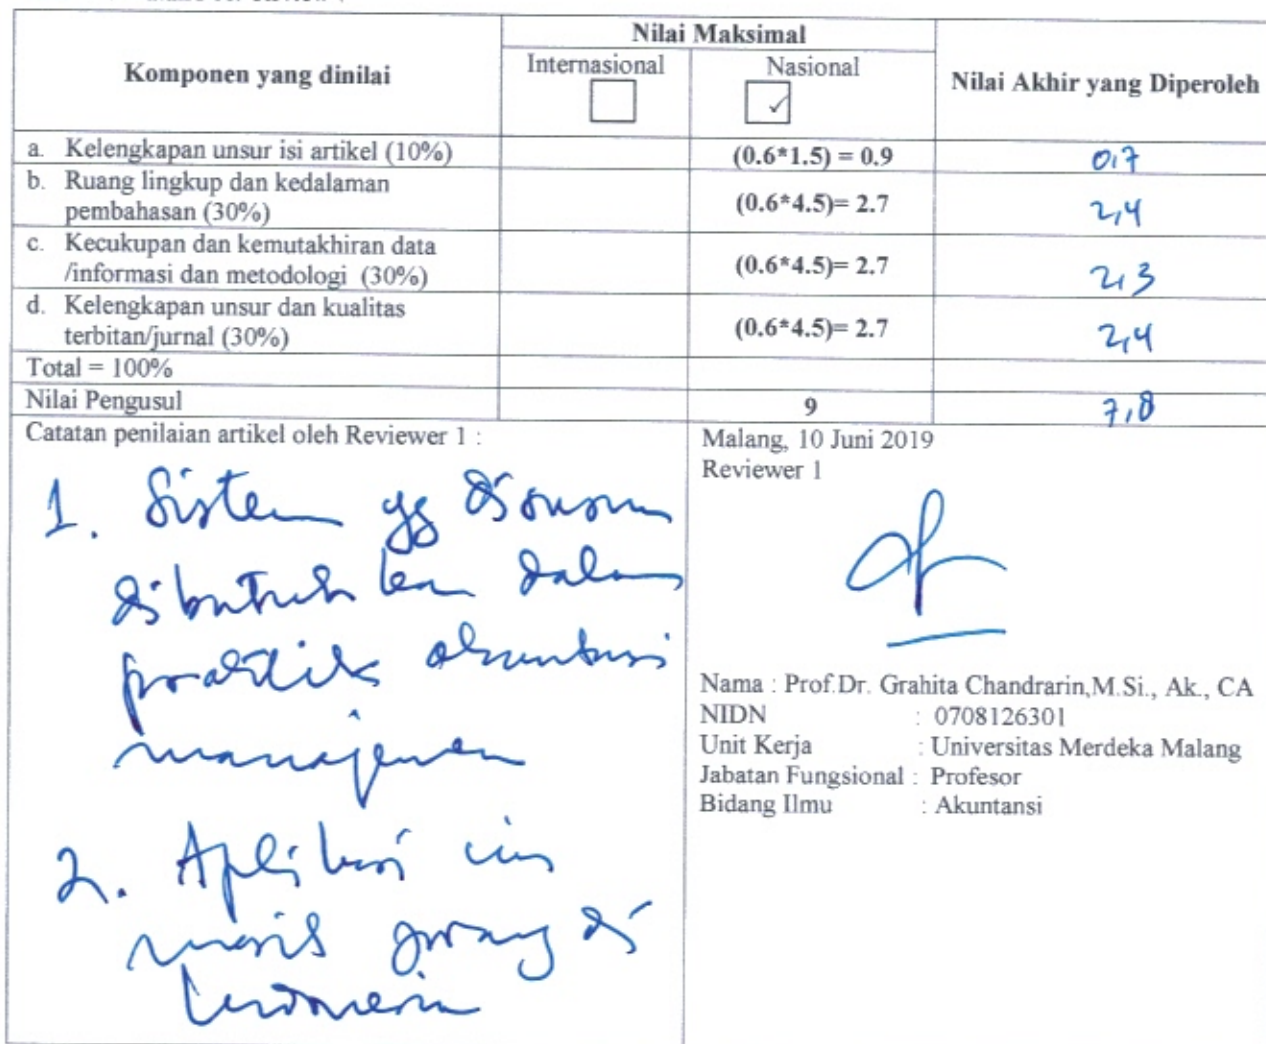 Nilai Maksimal
Komponen yang dinilai
Internasional
Nasional
✓
Nilai Akhir yang Diperoleh
a. Kelengkapan unsur isi artikel (10%)
(0.6*1.5) = 0.9
0,7
b. Ruang lingkup dan kedalaman
pembahasan (30%)
(0.6*4.5)= 2.7
2,4
c. Kecukupan dan kemutakhiran data
/informasi dan metodologi (30%)
(0.6*4.5)= 2.7
2,3
d. Kelengkapan unsur dan kualitas
terbitan/jurnal (30%)
(0.6*4.5)= 2.7
2,4
Total = 100%
Nilai Pengusul
9
7,8
Catatan penilaian artikel oleh Reviewer 1 :
1. Sistem yg disusun
dibutuhkan dalam
praktik akuntansi
manajemen
2. Aplikasi ini
masih jarang di
Indonesia
Malang, 10 Juni 2019
Reviewer 1
Nama : Prof.Dr. Grahita Chandrarin,M.Si., Ak., CA
NIDN : 0708126301
Unit Kerja : Universitas Merdeka Malang
Jabatan Fungsional : Profesor
Bidang Ilmu : Akuntansi